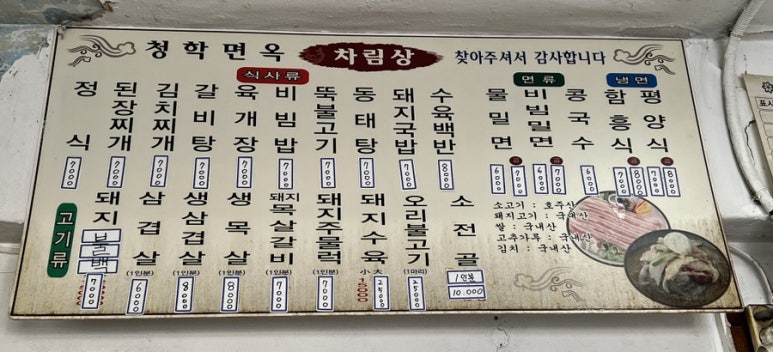 청학면옥 차림상 찾아주셔서 감사합니다
식사류
정식 7000
된장찌개 7000
김치찌개 7000
갈비탕 7000
육개장 7000
비빔밥 7000
뚝불고기 7000
동태탕 7000
돼지국밥 7000
수육백반 8000
면류
물밀면 6000 7000
비빔밀면 6000 7000
콩국수 6000
냉면
함흥식 7000 8000
평양식 7000 8000
고기류
돼지불백 7000
삼겹살 (1인분) 6000
생삼겹살 (1인분) 8000
생목살 (1인분) 8000
돼지목살갈비 (1인분) 7000
돼지주물럭 (1인분) 7000
돼지수육 小 大 25000
오리불고기 (1마리) 25000
소전골 1인분 10.000
소고기 : 호주산
돼지고기 : 국내산
쌀 : 국내산
고추가루 : 국내산
김치 : 국내산